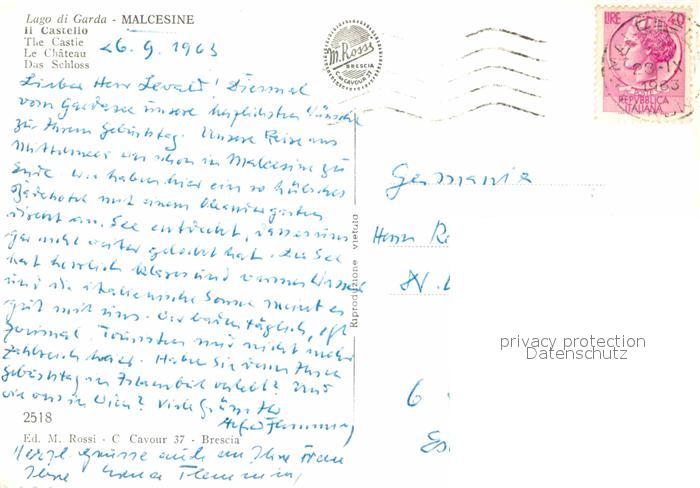 Lago di Garda - MALCESINE
Il Castello
The Castle
Le Château
Das Schloss
26. 9. 1963
M. Rossi
BRESCIA
C. CAVOUR 37
LIRE 40
1963
REPVBBLICA
ITALIANA
Lieber Herr Lewald! Diesmal
vom Gardasee unsere herzlichsten Wünsche
zu Ihrem Geburtstag. Unsere Reise ans
Mittelmeer war schon in Malcesine zu
Ende. Wir haben hier ein so hübsches
Badehotel mit einem Oleandergarten
direkt am See entdeckt, dass es uns
gar nicht weiter gelockt hat. Der See
hat herrlich klares und warmes Wasser
und die italienische Sonne meint es
gut mit uns. Wir baden täglich, oft
zweimal. Touristen sind nicht mehr
zahlreich hier. Haben Sie denn Ihren
Geburtstag in Istanbul verlebt? Und
wie war's in Wien? Viele Grüsse Ihr
Alfred Flemming
Herzl. Grüsse auch an Ihre Frau
Ihre Flemming
Germania
Herrn
6
2518
Ed. M. Rossi - C Cavour 37 - Brescia
Riproduzione vietata
privacy protection
Datenschutz